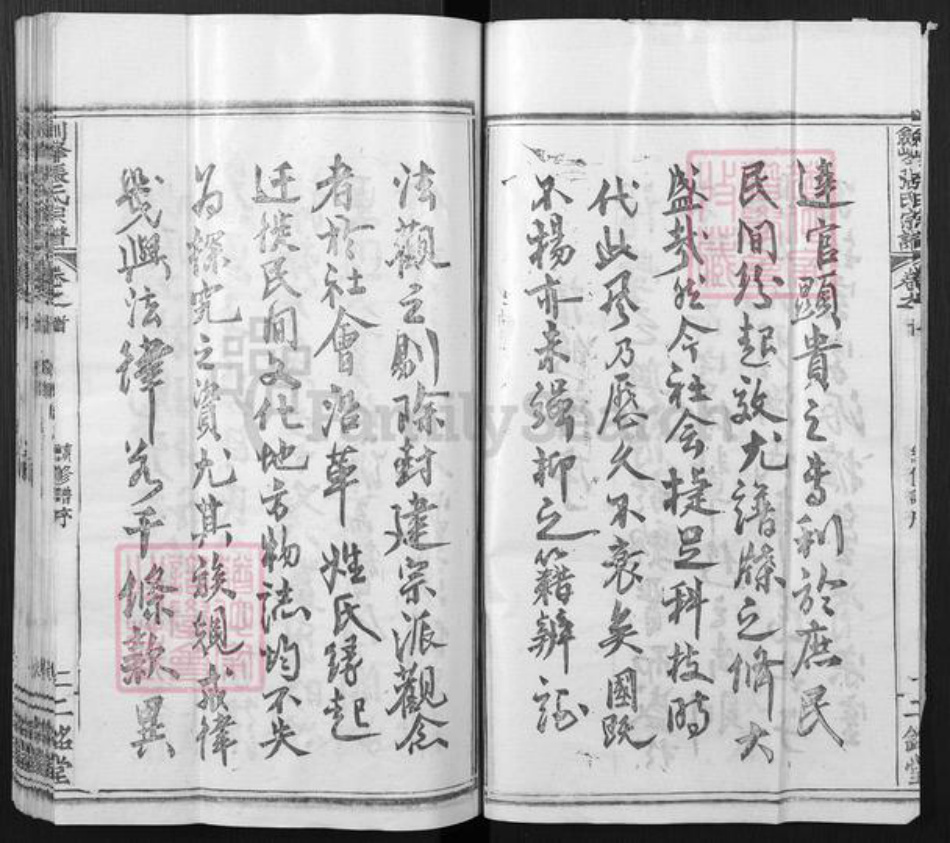 達官顯貴之專利於庶民
民間紛起效尤譜牒之修大
盛於然今社会捷足科技時
代此风乃历久不衰矣國既
不揚亦未強抑之籍辨证
法觀之則除封建宗派觀念
者於社會沿革姓氏緣起
迁徙民间文化地方物志均不失
为探究之資尤其族規戒律
幾與法律若干條款異
續修譜序
二銘堂
FamilySearch